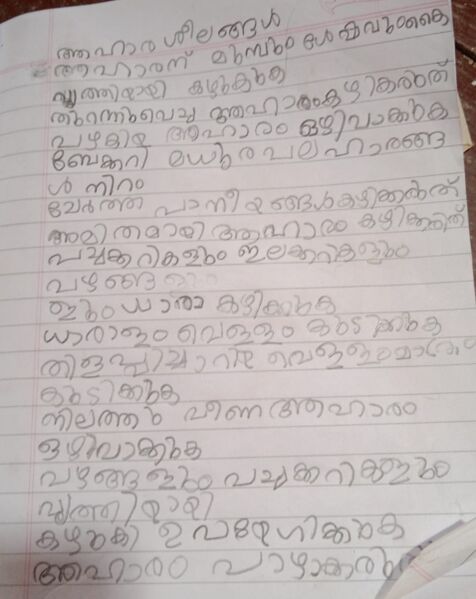 ആഹാര ശീലങ്ങൾ
ആഹാരന് മുമ്പും ശേഷവുംകൈ
വൃത്തിയായി കഴുകുക
തുറന്നുവെച്ച ആഹാരംകഴിക്കരുത്
പഴകിയ ആഹാരം ഒഴിവാക്കുക
ബേക്കറി മധുര പലഹാരങ്ങ
ൾ നിറം
ചേർത്ത പാനീയങ്ങൾകഴിക്കരുത്
അമിതമായി ആഹാരം കഴിക്കരുത്
പച്ചക്കറികളും ഇലക്കറികളും
പഴങ്ങളും
ഇും ധാരാ കഴിക്കുക
ധാരാളം വെള്ളം കുടിക്കുക
തിളപ്പിച്ചാറിയ വെള്ളംമാത്രം
കുടിക്കുക
നിലത്തു വീണ ആഹാരം
ഒഴിവാക്കുക
പഴങ്ങളും പച്ചക്കറികളും
വൃത്തിയായി
കഴുകി ഉപയോഗിക്കുക
ആഹാരം പാഴാക്കരുത്